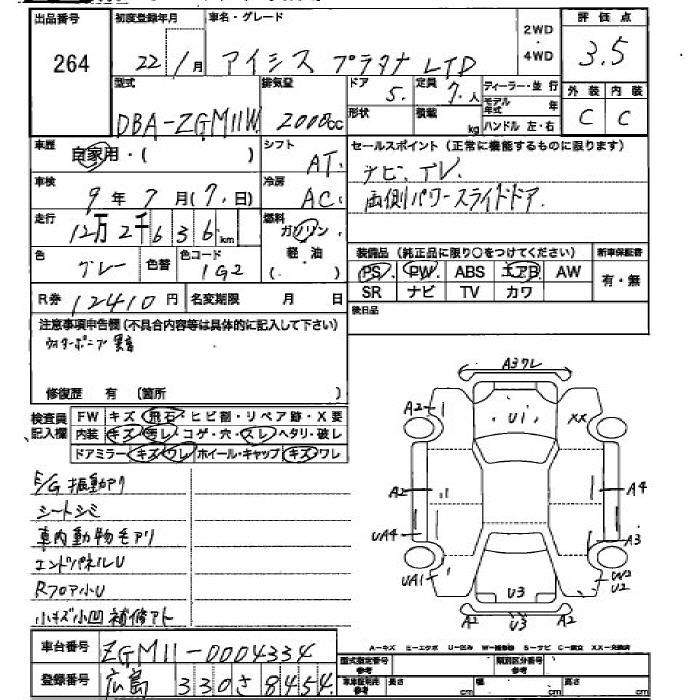 出品番号
264
初度登録年月
22年/1月
車名・グレード
アイシス プラタナ LTD
2WD
・
4WD
評価点
3.5
外装 内装
C C
型式
DBA-ZGM11W
排気量
2000cc
ドア
5.
定員
7.人
形状
積載
kg
ディーラー・並行
モデル年式 年
ハンドル 左・右
車歴
自家用・( )
シフト
AT.
セールスポイント(正常に機能するものに限ります)
ナビ、TV.
両側パワースライドドア.
車検
9年7月(7.日)
冷房
AC.
走行
12万2千636km
燃料
ガソリン・
軽・油
( )
色
グレー
色替
色コード
1G2
装備品(純正品に限り○をつけてください)
PS PW ABS エアB AW
SR ナビ TV カワ
新車保証書
有・無
R券 12410円
名変期限 月 日
後日品
注意事項申告欄(不具合内容等は具体的に記入して下さい)
ウォーターポンプ 異音
修復歴 有 (箇所 )
検査員記入欄
FW キズ・飛石・ヒビ割・リペア跡・X要
内装 キズ・汚レ・コゲ・穴・スレ・ヘタリ・破レ
ドアミラー キズ・ワレ ホイール・キャップ キズ・ワレ
E/G 振動アリ
シートシミ
車内動物毛アリ
エンドパネルU
Rフロア小U
小キズ小凹補修アト
A3ワレ
A2
U1
XX
A2
A4
UA4
A3
UA1
W2
U2
U3
A2 U3 A2
A=キズ E=エクボ U=凹み W=補修跡 S=サビ C=腐食 XX=交換済
車台番号
ZGM11-0004334
登録番号
広島 330 さ 8454
型式指定番号
参考
類別区分番号
参考
車庫証明用
参考
長さ cm 幅 cm 高さ cm